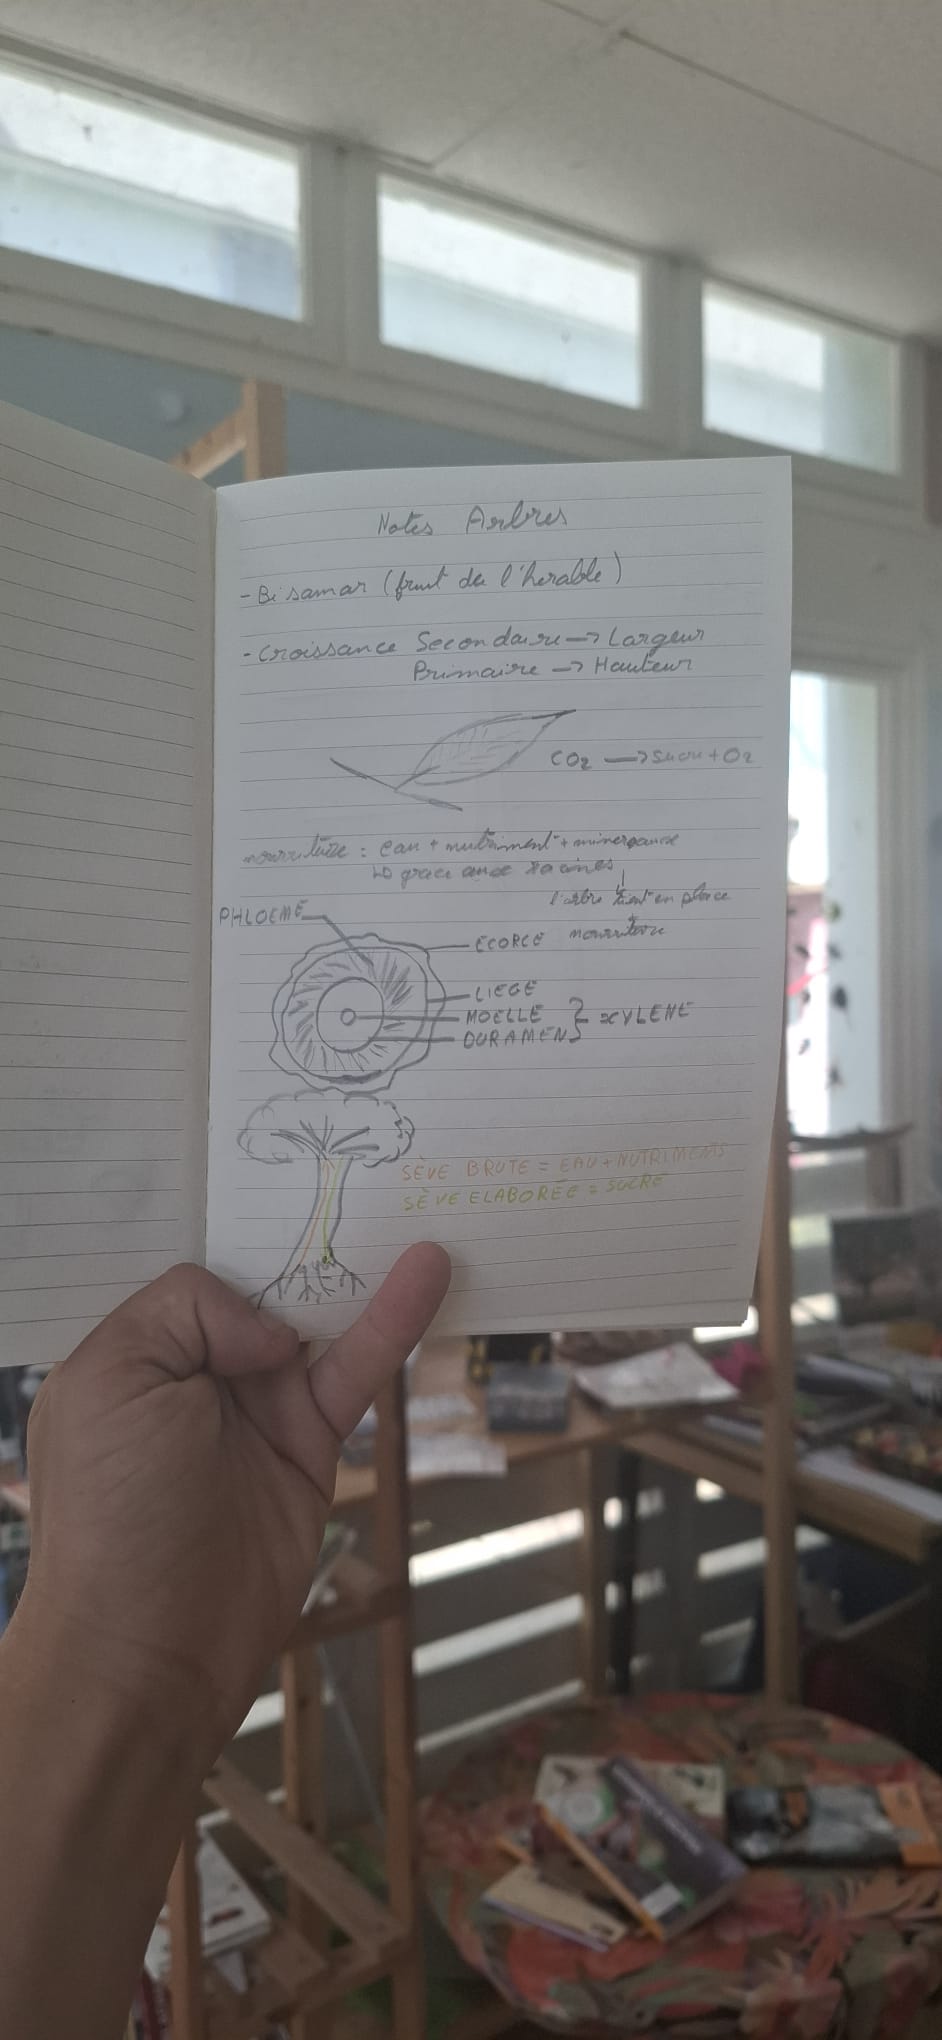 Notes Arbres
- Bisamar (fruit de l'herable)
- Croissance Secondaire → Largeur
Primaire → Hauteur
CO2 → sucre + O2
nourriture = eau + nutriment +
↳ grace aux racines
l'arbre tient en place
nourriture
PHLOEME
ECORCE
LIEGE
MOELLE
DURAMEN } XYLENE
SÈVE BRUTE = EAU + NUTRIMENTS
SÈVE ELABORÉE = SUCRE